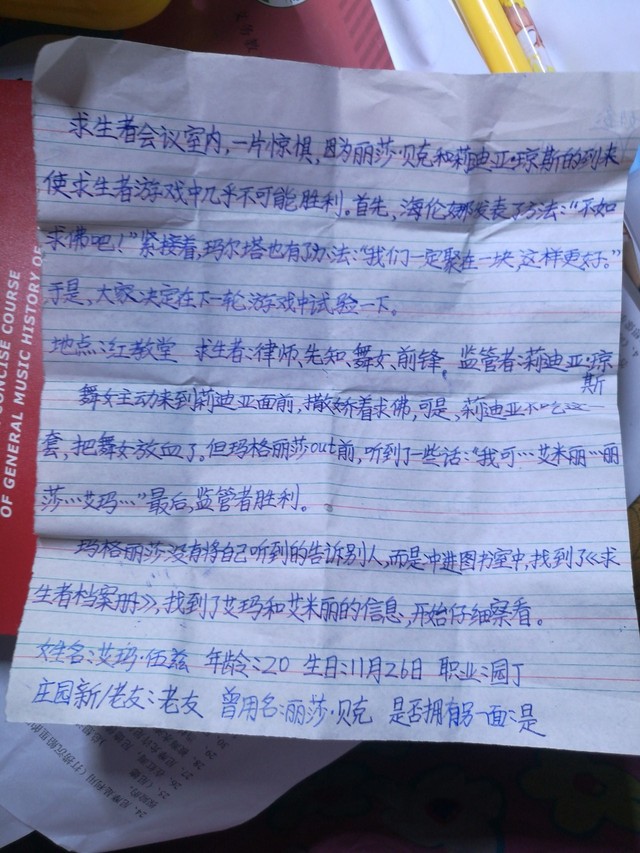 求生者会议室内,一片惊惧,因为丽莎·贝克和莉迪亚·琼斯的到来
使求生者游戏中几乎不可能胜利。首先,海伦娜发表了方法:“不如
求佛吧!”紧接着,玛尔塔也有了办法:“我们一定聚在一块,这样更好。”
于是,大家决定在下一轮游戏中试验一下。
地点:红教堂 求生者:律师、先知、舞女、前锋。监管者:莉迪亚·琼
斯
舞女主动来到莉迪亚面前,撒娇着求佛,可是,莉迪亚不吃这一
套,把舞女放血了。但玛格丽莎out前,听到了一些话:“我可…艾米丽…丽
莎…艾玛…”最后,监管者胜利。
玛格丽莎没有将自己听到的告诉别人,而是冲进图书室中,找到了《求
生者档案册》,找到了艾玛和艾米丽的信息,开始仔细察看。
姓名:艾玛·伍兹 年龄:20 生日:11月26日 职业:园丁
庄园新/老友:老友 曾用名:丽莎·贝克 是否拥有另一面:是
CONCISE COURSE
OF GENERAL MUSIC HISTORY OF